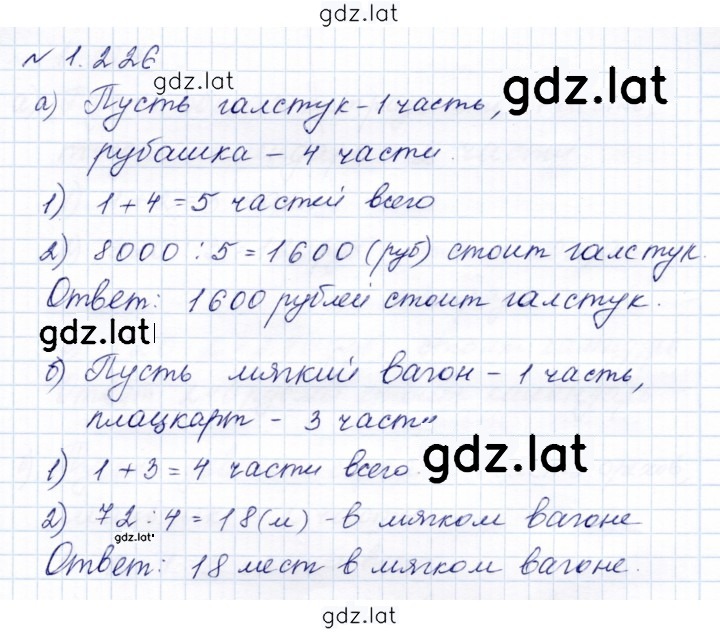 gdz.lat
№ 1.226
gdz.lat
gdz.lat
а) Пусть галстук - 1 часть,
рубашка - 4 части.
1) 1 + 4 = 5 частей всего
2) 8000 : 5 = 1600 (руб) стоит галстук.
Ответ: 1600 рублей стоит галстук.
gdz.lat
б) Пусть мягкий вагон - 1 часть,
плацкарт - 3 части
gdz.lat
1) 1 + 3 = 4 части всего.
2) 72 : 4 = 18 (м) - в мягком вагоне
gdz.lat
Ответ: 18 мест в мягком вагоне.
gdz.lat